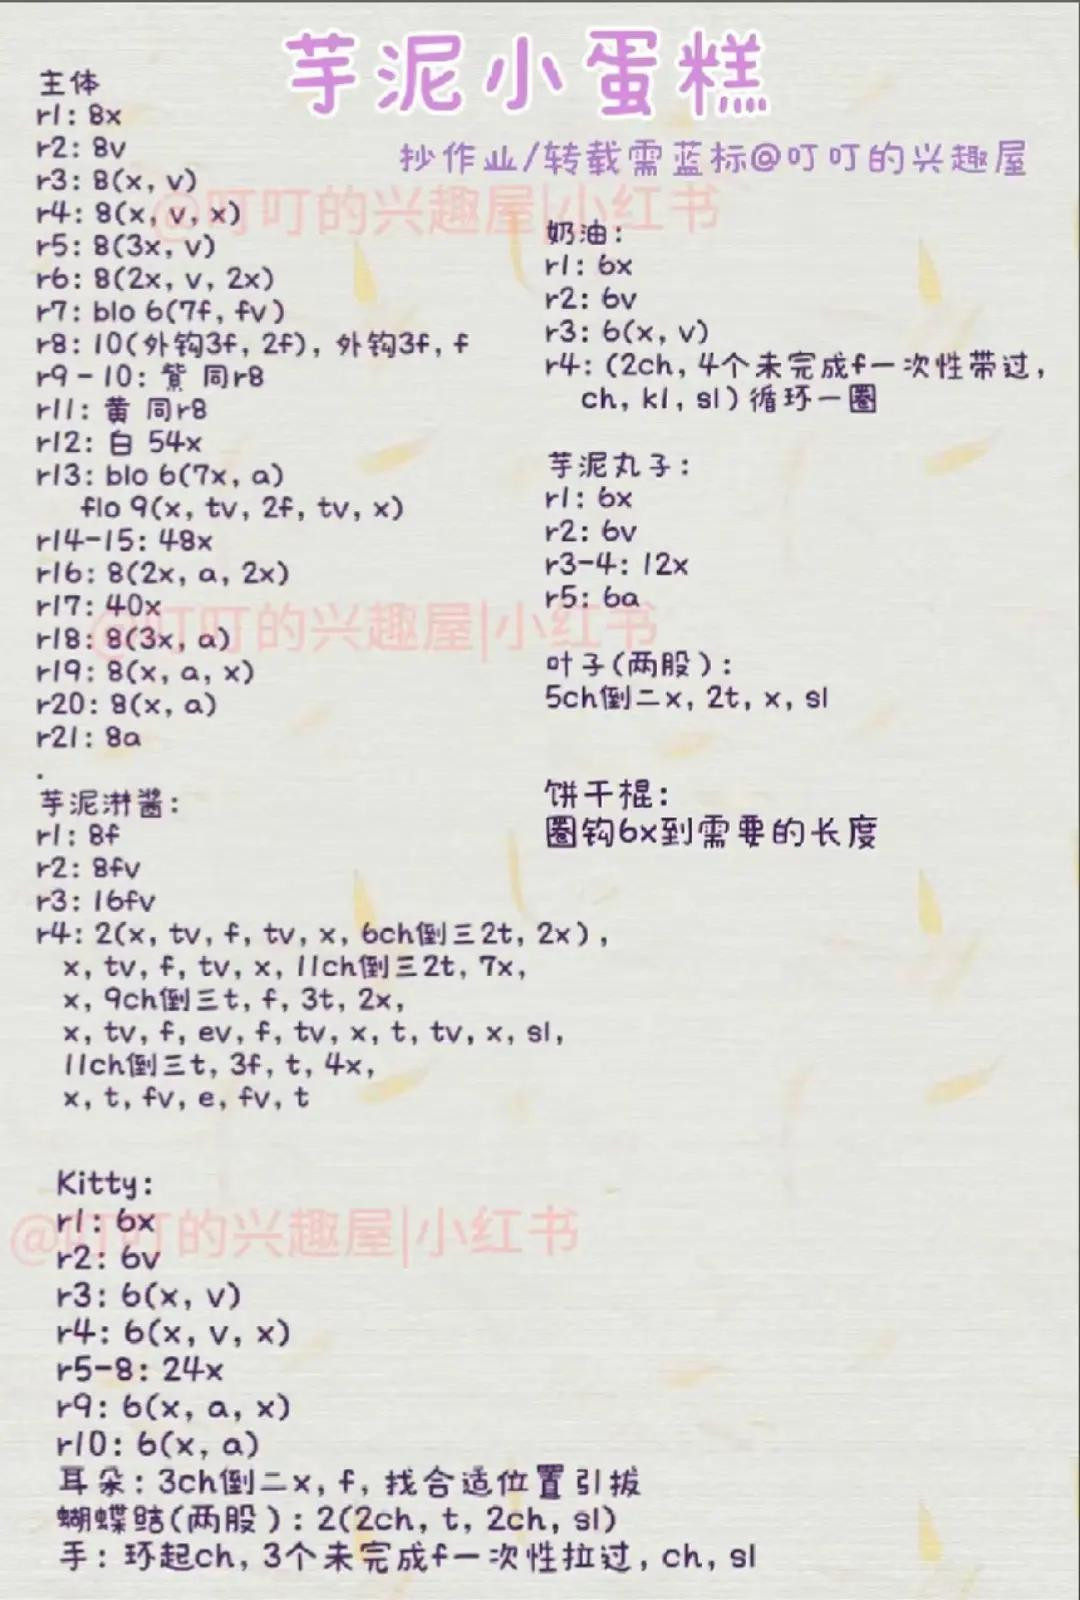 芋泥小蛋糕
抄作业/转载需蓝标@叮叮的兴趣屋
主体
r1: 8x
r2: 8v
r3: 8(x, v)
r4: 8(x, v, x)
r5: 8(3x, v)
r6: 8(2x, v, 2x)
r7: blo 6(7f, fv)
r8: 10(外钩3f, 2f), 外钩3f, f
r9-10: 紫 同r8
r11: 黄 同r8
r12: 白 54x
r13: blo 6(7x, a)
flo 9(x, tv, 2f, tv, x)
r14-15: 48x
r16: 8(2x, a, 2x)
r17: 40x
r18: 8(3x, a)
r19: 8(x, a, x)
r20: 8(x, a)
r21: 8a
.
芋泥淋酱:
r1: 8f
r2: 8fv
r3: 16fv
r4: 2(x, tv, f, tv, x, 6ch倒三2t, 2x),
x, tv, f, tv, x, 11ch倒三2t, 7x,
x, 9ch倒三t, f, 3t, 2x,
x, tv, f, ev, f, tv, x, t, tv, x, sl,
11ch倒三t, 3f, t, 4x,
x, t, fv, e, fv, t
Kitty:
r1: 6x
r2: 6v
r3: 6(x, v)
r4: 6(x, v, x)
r5-8: 24x
r9: 6(x, a, x)
r10: 6(x, a)
耳朵: 3ch倒二x, f, 找合适位置引拔
蝴蝶结(两股): 2(2ch, t, 2ch, sl)
手: 环起ch, 3个未完成f一次性拉过, ch, sl
奶油:
r1: 6x
r2: 6v
r3: 6(x, v)
r4: (2ch, 4个未完成f一次性带过,
ch, k1, sl) 循环一圈
芋泥丸子:
r1: 6x
r2: 6v
r3-4: 12x
r5: 6a
叶子(两股):
5ch倒二x, 2t, x, sl
饼干棍:
圈钩6x到需要的长度
@叮叮的兴趣屋|小红书
@叮叮的兴趣屋|小红书
@叮叮的兴趣屋|小红书